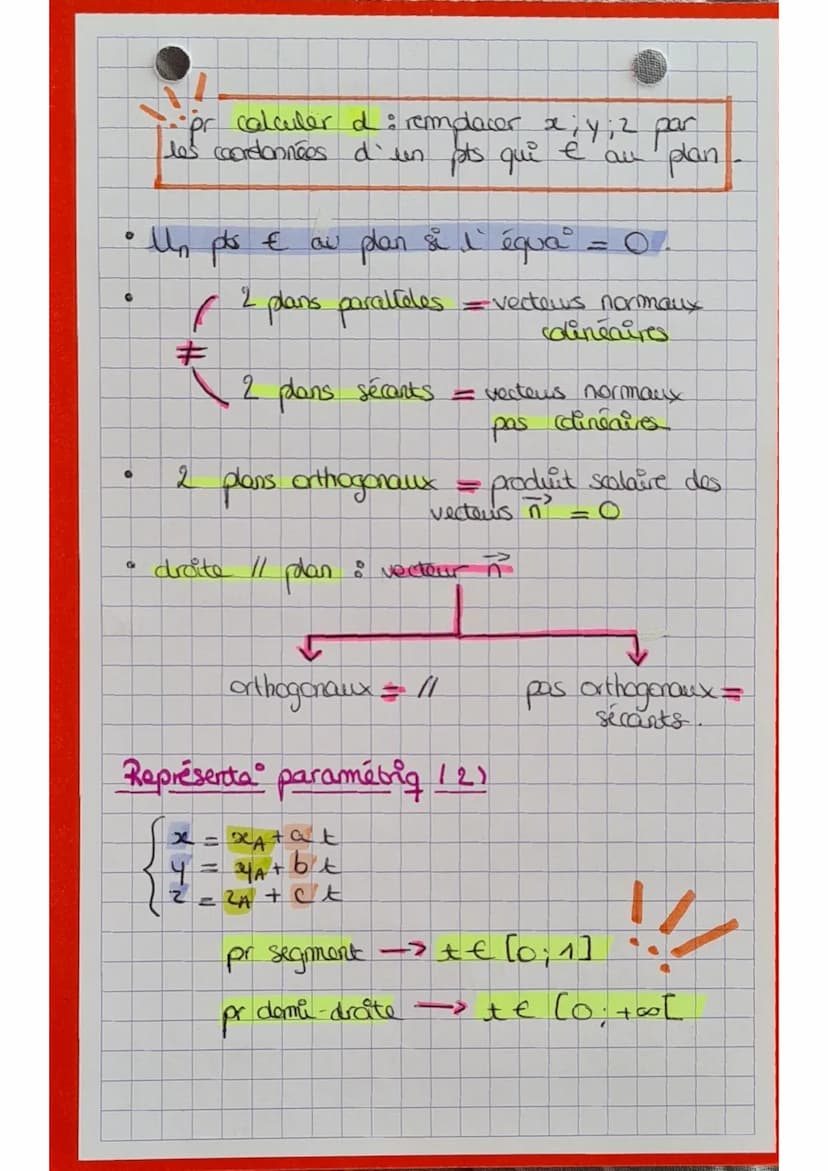 pr calculer d : remplacer x ; y ; z par
les coordonnées d'un pts qui € au plan.
• Un pts € au plan si l'équa° = 0.
• 2 plans parallèles = vecteurs normaux
colinéaires
≠
2 plans sécants = vecteurs normaux
pas colinéaires
• 2 plans orthogonaux = produit scalaire des
vecteurs n⃗ = 0
• droite // plan : vecteur n⃗
orthogonaux = // pas orthogonaux =
sécants.
Représenta° paramétriq (2)
x = xA + a t
y = yA + b t
z = zA + c t
pr segment → t € [0 ; 1]
pr demi-droite → t € [0 ; +∞[